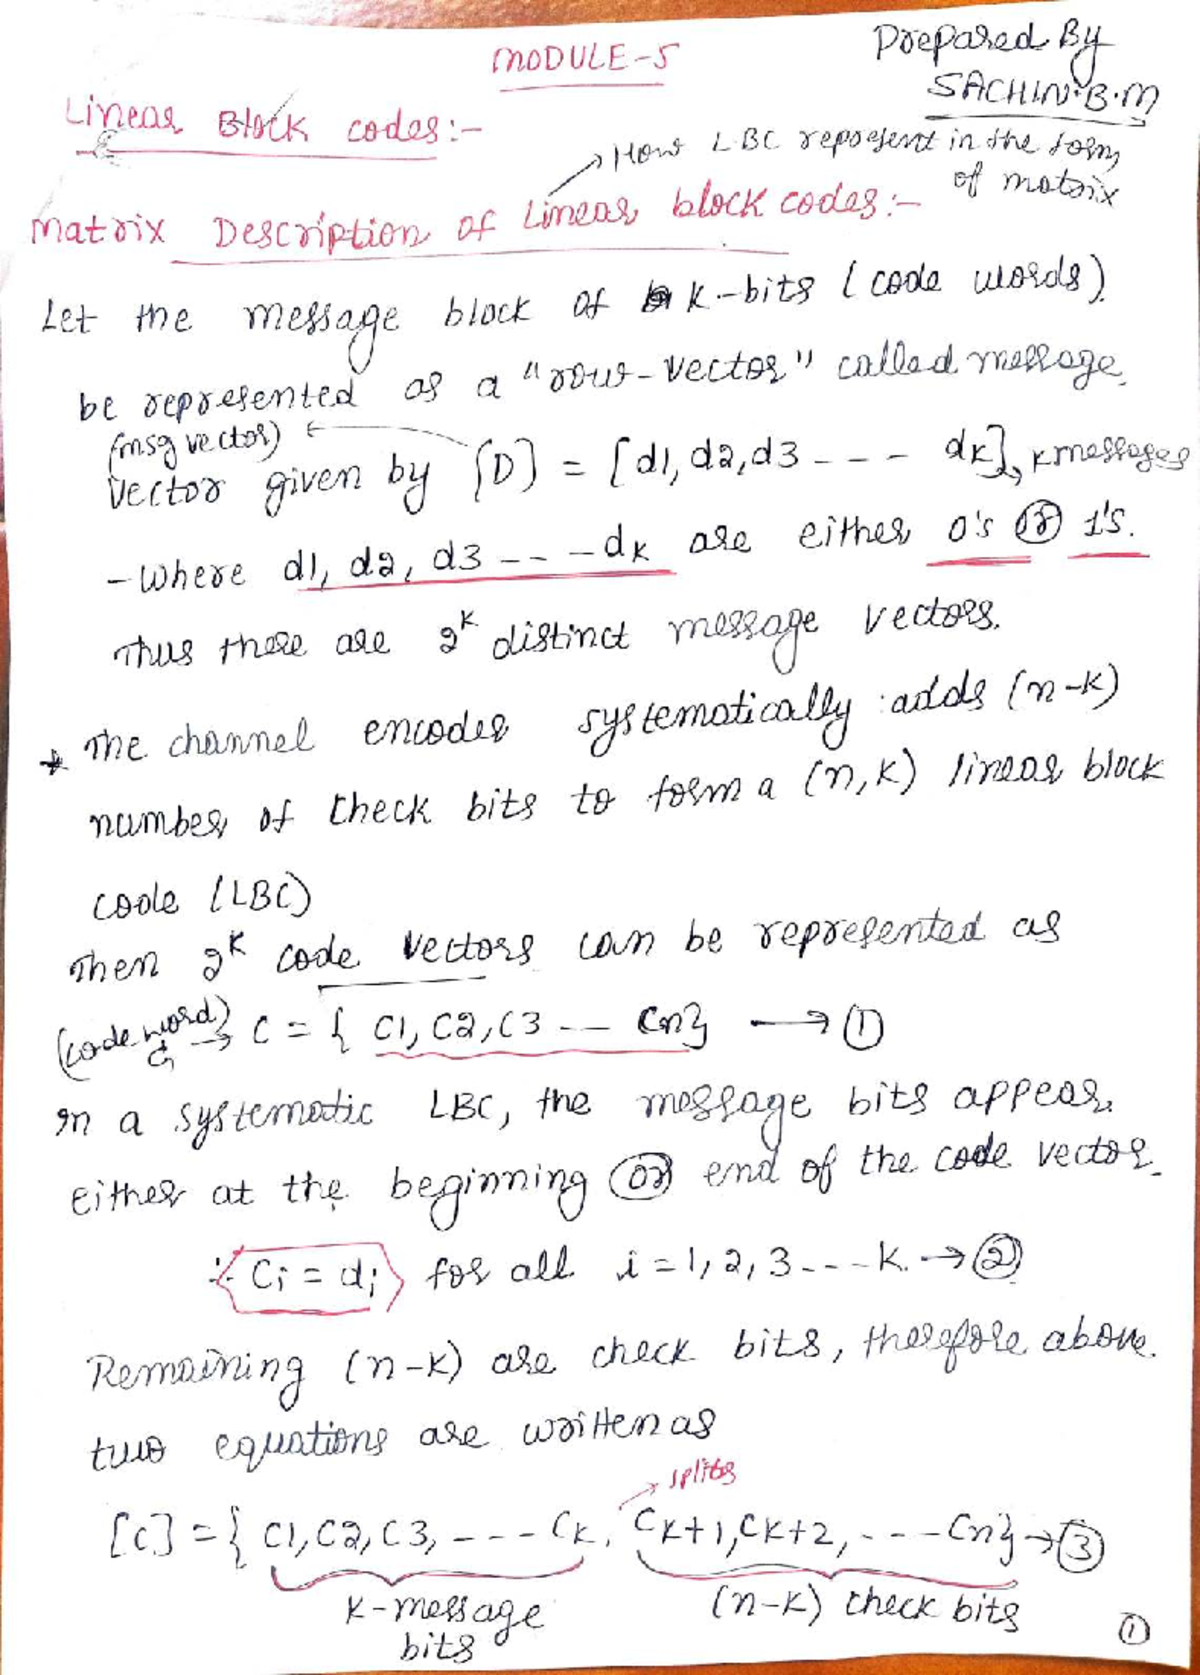 MODULE-5
Prepared By
SACHIN.B.M
Linear Block codes:-
→ How LBC represent in the form
of matrix
Matrix Description of Linear block codes:-
Let the message block of k-bits (code words)
be represented as a "row-vector" called message
(msg vector) ←
vector given by [D] = [d1, d2, d3 --- dk] → k messages
- Where d1, d2, d3 --- dk are either 0's or 1's.
Thus there are 2^k distinct message vectors.
* The channel encoder systematically adds (n-k)
number of check bits to form a (n,k) linear block
code (LBC)
Then 2^k code vectors can be represented as
(code word) → C = { C1, C2, C3 --- Cn} → ①
In a systematic LBC, the message bits appear
either at the beginning or end of the code vector.
∴ Ci = di for all i = 1, 2, 3 ---- k. → ②
Remaining (n-k) are check bits, therefore above
two equations are written as
→ splits
[C] = { C1, C2, C3, ---- Ck, Ck+1, Ck+2, ---- Cn} → ③
k-message
bits
(n-k) check bits
①